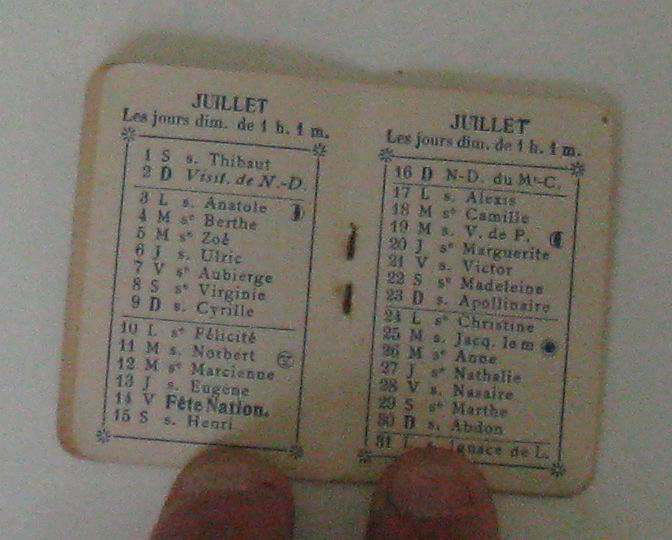 JUILLET
Les jours dim. de 1 h. 1 m.
1 S s. Thibaut
2 D Visit. de N.-D.
3 L s. Anatole
4 M sᵉ Berthe
5 M sᵉ Zoé
6 J s. Ulric
7 V sᵉ Aubierge
8 S sᵉ Virginie
9 D s. Cyrille
10 L sᵉ Félicité
11 M s. Norbert
12 M sᵉ Marcienne
13 J s. Eugène
14 V Fête Nation.
15 S s. Henri
JUILLET
Les jours dim. de 1 h. 1 m.
16 D N-D. du Mᵗ-C.
17 L s. Alexis
18 M sᵉ Camille
19 M s. V. de P.
20 J sᵉ Marguerite
21 V s. Victor
22 S sᵉ Madeleine
23 D s. Apollinaire
24 L sᵉ Christine
25 M s. Jacq. le m
26 M sᵉ Anne
27 J sᵉ Nathalie
28 V s. Nazaire
29 S sᵉ Marthe
30 D s. Abdon
31 L s. Ignace de L.